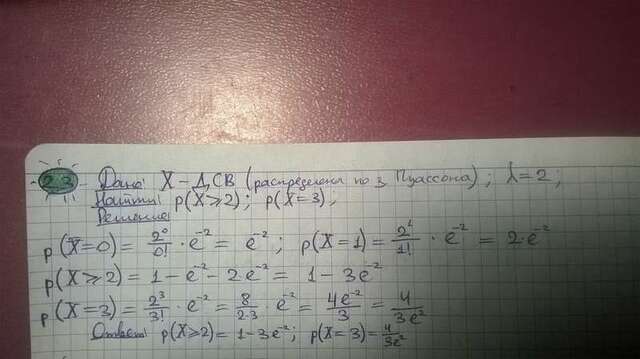 2.2. Дано: X – ДСВ (распределена по з. Пуассона); λ=2;
Найти: p(X≥2); p(X=3);
Решение:
p(X=0) = 2⁰/0! · e⁻² = e⁻²; p(X=1) = 2¹/1! · e⁻² = 2·e⁻²
p(X≥2) = 1 – e⁻² – 2e⁻² = 1 – 3e⁻²
p(X=3) = 2³/3! · e⁻² = 8/2·3 · e⁻² = 4e⁻²/3 = 4/3e²
Ответ: p(X≥2) = 1–3e⁻²; p(X=3) = 4/3e²